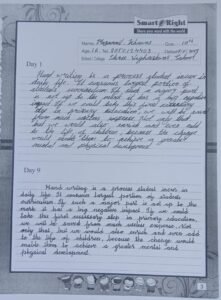 Smart Right
Share your mind with the world
Name:
Day 1
Hand writing is a process student incur in
daily life. It contains largest portion of
students curriculum. If such a major part
is not up to the mark it has a big negative
impact. If we could take this first necessary
step in primary education, we will be saved
from much useless expense. Not only that
but we would save much and even add
to the life of children, because the change
would enable them to achieve a greater
mental and physical development.
Day 9
Hand writing is a process student incur in
daily life. It contains largest portion of students
curriculum. If such a major part is not up to the
mark it has a big negative impact. If we could
take this first necessary step in primary education,
we will be saved from much useless expense. Not
only that, but we would save much and even add
to the life of children, because the change would
enable them to achieve a greater mental and
physical development.
3